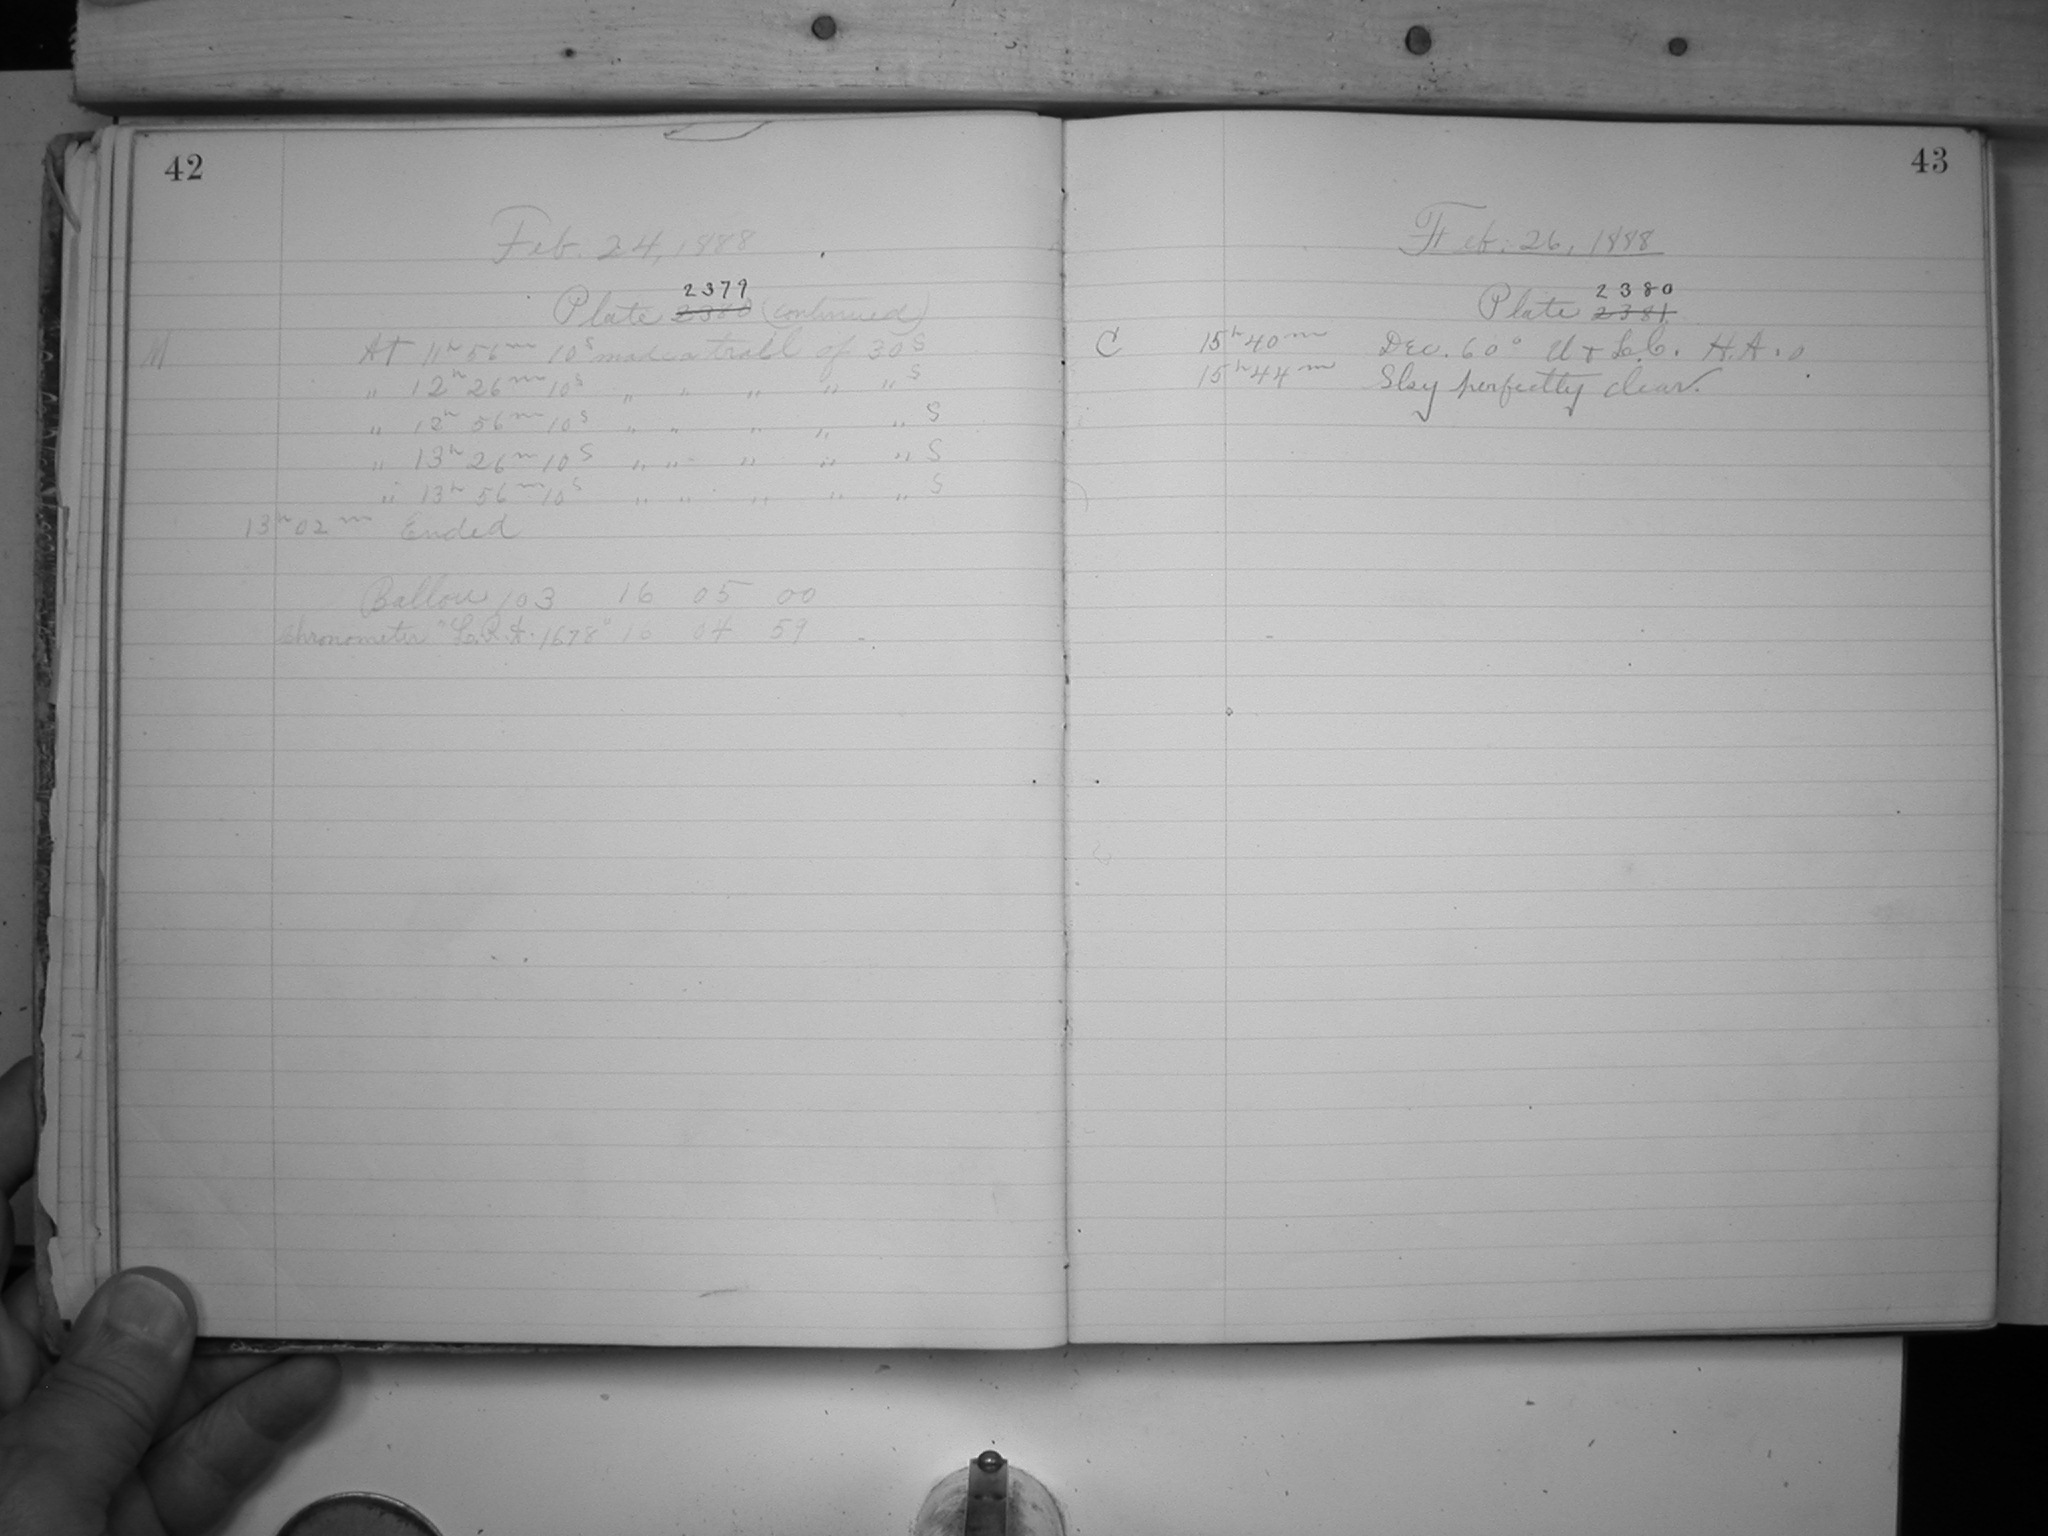 42
Feb. 24, 1888
2379
Plate 2380 (continued)
M At 11h 56m 10s made a trail of 30s
" 12h 26m 10s " " " " " s
" 12h 56m 10s " " " " " s
" 13h 26m 10s " " " " " s
" 13h 56m 10s " " " " " s
13h 02m Ended
Ballou 103 16 05 00
Chronometer " 1678" 16 04 59
43
Feb. 26, 1888
2380
Plate 2381
C 15h 40m Dec. 60° U & L.C. H.A. 0
15h 44m Sky perfectly clear.